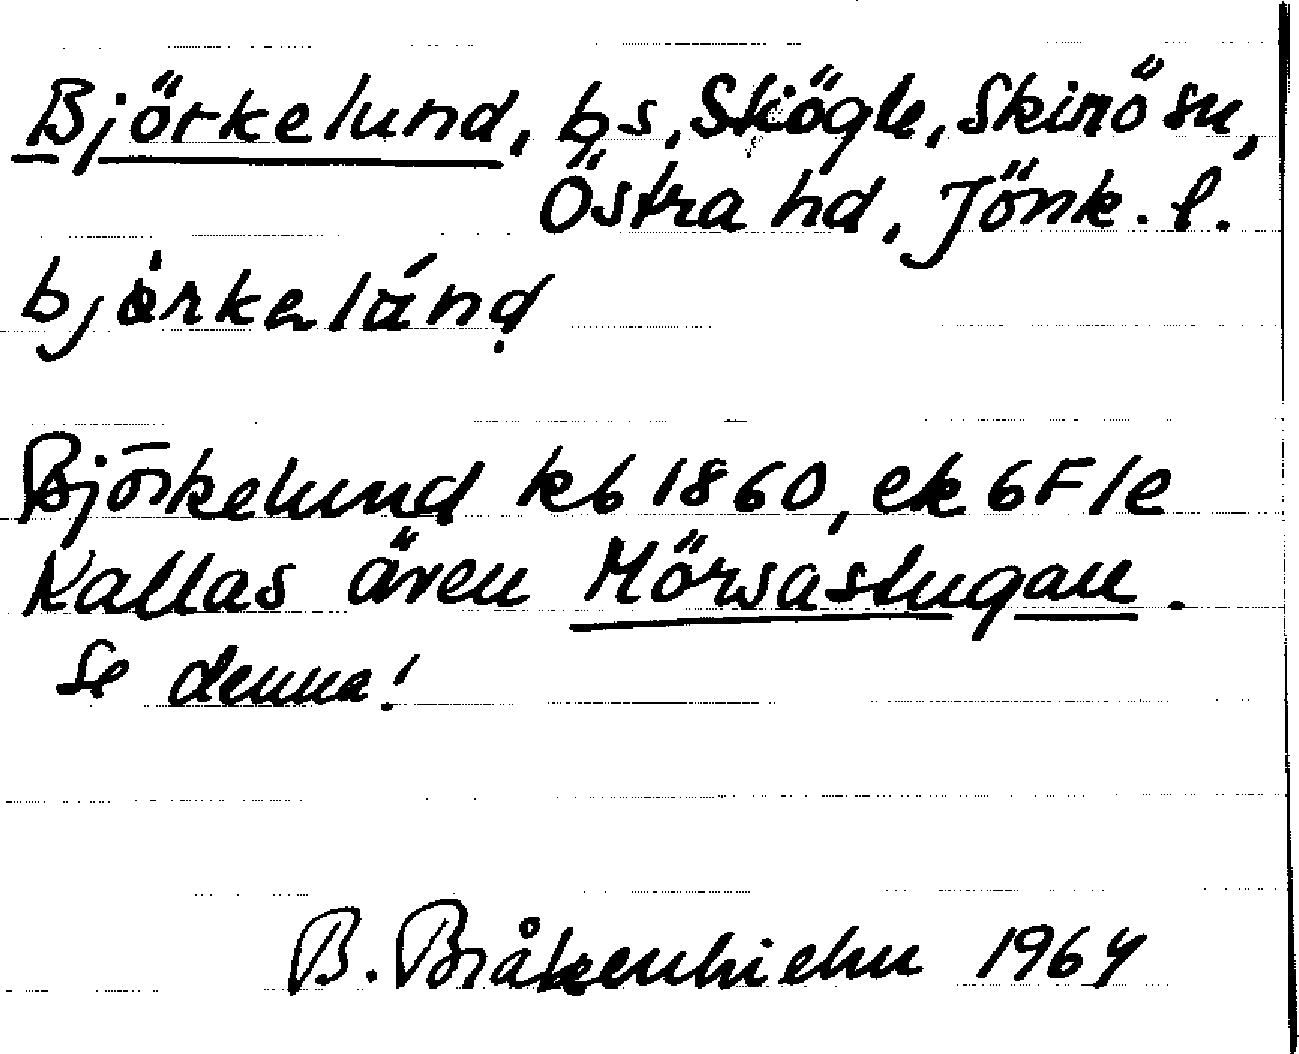 Björkelund, bs, Skögle, Skirö sn,
Östra hd, Jönk. l.
bjärkelánḍ
Björkelund kb 1860, ek 6F1e
Kallas även Mörsastugan.
Se denna!
B. Bråkenhielm 1964